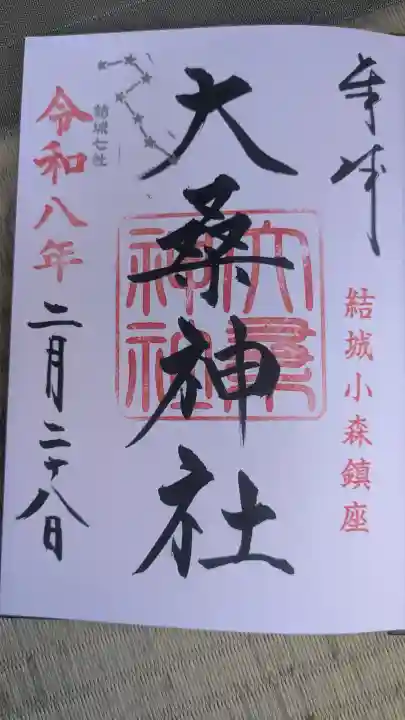 奉拝
結城小森鎮座
大桑神社
大桑神社
結城七社
令和八年
二月二十八日